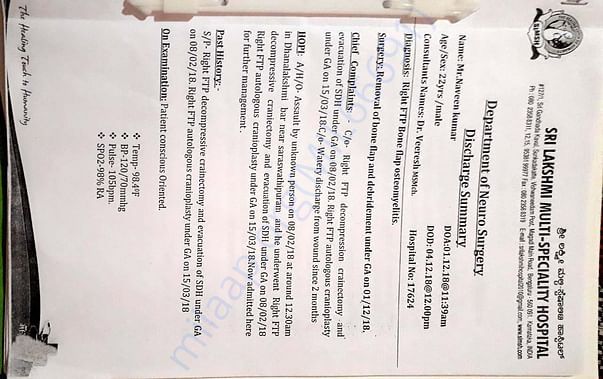 ಶ್ರೀ ಲಕ್ಷ್ಮಿ ಮಲ್ಟಿ-ಸ್ಪೆಷಾಲಿಟಿ ಹಾಸ್ಪಿಟಲ್
SRI LAKSHMI MULTI-SPECIALITY HOSPITAL
Magadi Main Road, Bengaluru - 560 091. Karnataka, INDIA
Department of Neuro Surgery
Discharge Summary
Name: Mr.Naveen kumar DOA:01.12.18@11:39am
Age/Sex: 22yrs /male DOD: 04.12.18@12.00pm
Consultants Names: Dr. Veeresh MSMch. Hospital No: 17624
Diagnosis: Right FTP Bone flap osteomyelitis.
Surgery: Removal of bone flap and debridement under GA on 01/12/18.
Chief Complaints: C/o- Right FTP decompression crainectomy and
evacuation of SDH under GA on 08/02/18. Right FTP autologous cranioplasty
under GA on 15/03/18.C/o- Watery discharge from wound since 2 months
HOPI: A/H/O- Assault by unknown person on 08/02/18 at around 12.30am
in Dhanalakshmi bar near saraswathipuram and he underwent Right FTP
decompressive craniectomy and evacuation of SDH under GA on 08/02/18
Right FTP autologous cranioplasty under GA on 15/03/18.Now admitted here
for further management.
Past History:-
S/P- Right FTP decompressive crainectomy and evacuation of SDH under GA
on 08/02/18. Right FTP autologous cranioplasty under GA on 15/03/18
On Examination: Patient conscious Oriented.
❖ Temp- 98.4⁰F
❖ BP-120/70mmhg
❖ Pulse-105bpm.
❖ SPO2-98% RA
The Healing Touch to Humanity